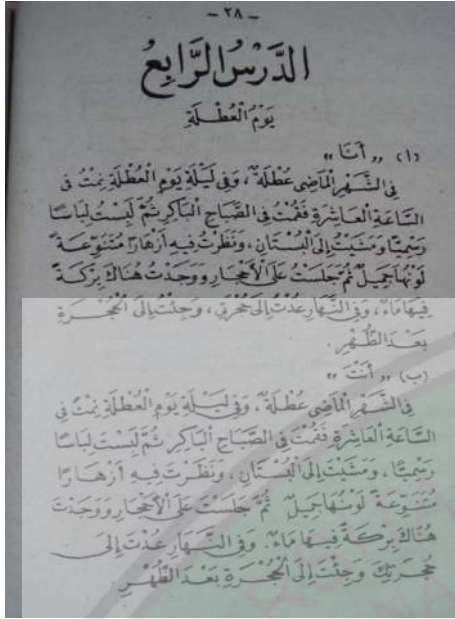 - ٢٨ -
الدَّرْسُ الرَّابِعُ
يَوْمُ الْعُطْلَةِ
(١) „ أَنَا „
فِي الشَّهْرِ الْمَاضِي عُطْلَةٌ ، وَفِي لَيْلَةِ يَوْمِ الْعُطْلَةِ نِمْتُ فِي
السَّاعَةِ الْعَاشِرَةِ فَقُمْتُ فِي الصَّبَاحِ الْبَاكِرِ ثُمَّ لَبِسْتُ لِبَاسًا
رَسْمِيًّا وَمَشَيْتُ إِلَى الْبُسْتَانِ ، وَنَظَرْتُ فِيهِ أَزْهَارًا مُتَنَوِّعَةً
لَوْنُهَا جَمِيلٌ ثُمَّ جَلَسْتُ عَلَى الْأَحْجَارِ وَوَجَدْتُ هُنَاكَ بِرْكَةً
فِيهَا مَاءٌ ، وَفِي النَّهَارِ عُدْتُ إِلَى حُجْرَتِي ، وَجِئْتُ إِلَى الْحُجْرَةِ
بَعْدَ الظُّهْرِ .
(ب) „ أَنْتَ „
فِي الشَّهْرِ الْمَاضِي عُطْلَةٌ ، وَفِي لَيْلَةِ يَوْمِ الْعُطْلَةِ نِمْتَ فِي
السَّاعَةِ الْعَاشِرَةِ فَقُمْتَ فِي الصَّبَاحِ الْبَاكِرِ ثُمَّ لَبِسْتَ لِبَاسًا
رَسْمِيًّا ، وَمَشَيْتَ إِلَى الْبُسْتَانِ ، وَنَظَرْتَ فِيهِ أَزْهَارًا
مُتَنَوِّعَةً لَوْنُهَا جَمِيلٌ ثُمَّ جَلَسْتَ عَلَى الْأَحْجَارِ وَوَجَدْتَ
هُنَاكَ بِرْكَةً فِيهَا مَاءٌ . وَفِي النَّهَارِ عُدْتَ إِلَى
حُجْرَتِكَ وَجِئْتَ إِلَى الْحُجْرَةِ بَعْدَ الظُّهْرِ .